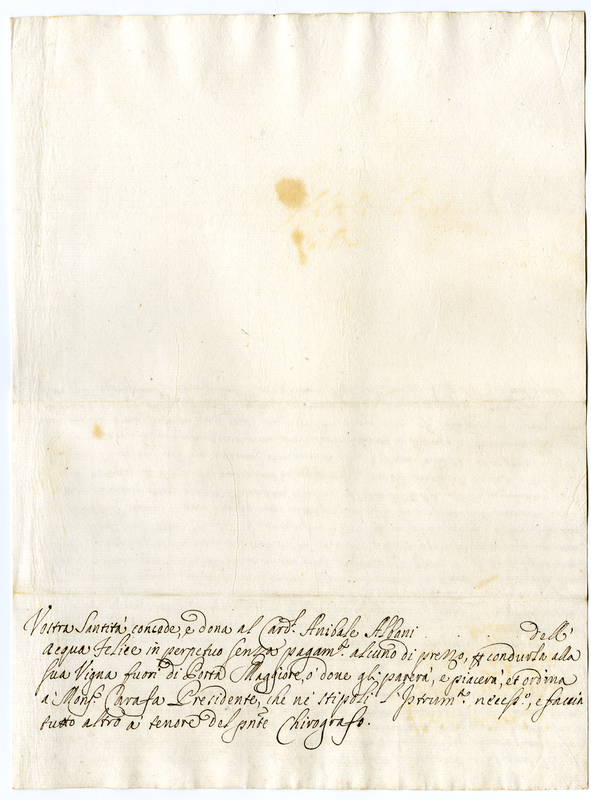 Vostra Santità concede, e dona al Card.l Anibale Albani dell'
Acqua Felice in perpetuo senza pagam.to alcuno di prezzo, p condurla alla
sua Vigna fuori di Porta Maggiore, ò doue gli parerà, e piacerà, et ordina
à Mons.r Carafa Presidente, che ne stipoli l'Istrum.to necess.o, e faccia
tutto altro à tenore del pnte Chirografo.